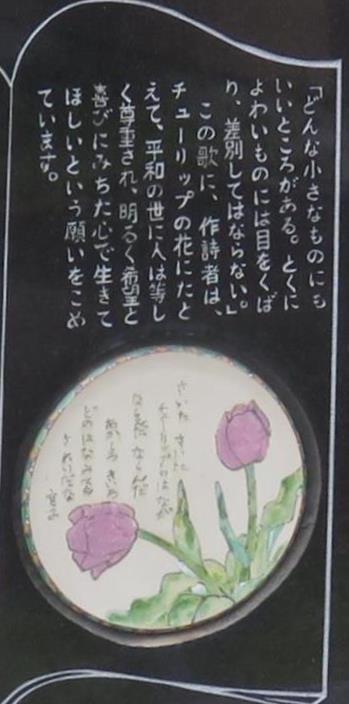 「どんな小さなものにも
いいところがある。とくに
よわいものには目をくば
り、差別してはならない。」
この歌に、作詩者は、
チューリップの花にたと
えて、平和の世に人は等し
く尊重され、明るく希望と
喜びにみちた心で生きて
ほしいという願いをこめ
ています。
さいた さいた
チューリップのはなが
ならんだ ならんだ
あか しろ きいろ
どのはなみても
きれいだな